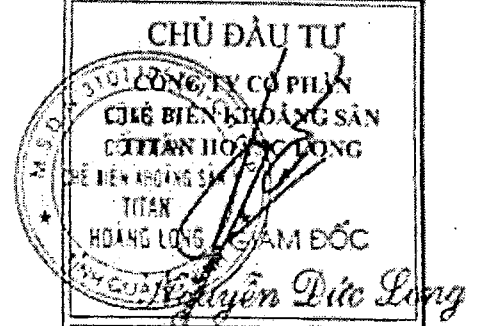 CHỦ ĐẦU TƯ
CÔNG TY CỔ PHẦN
CHẾ BIẾN KHOÁNG SẢN
TITAN HOÀNG LONG
CHẾ BIẾN KHOÁNG SẢN
TITAN
HOÀNG LONG
GIÁM ĐỐC
Nguyễn Đức Long